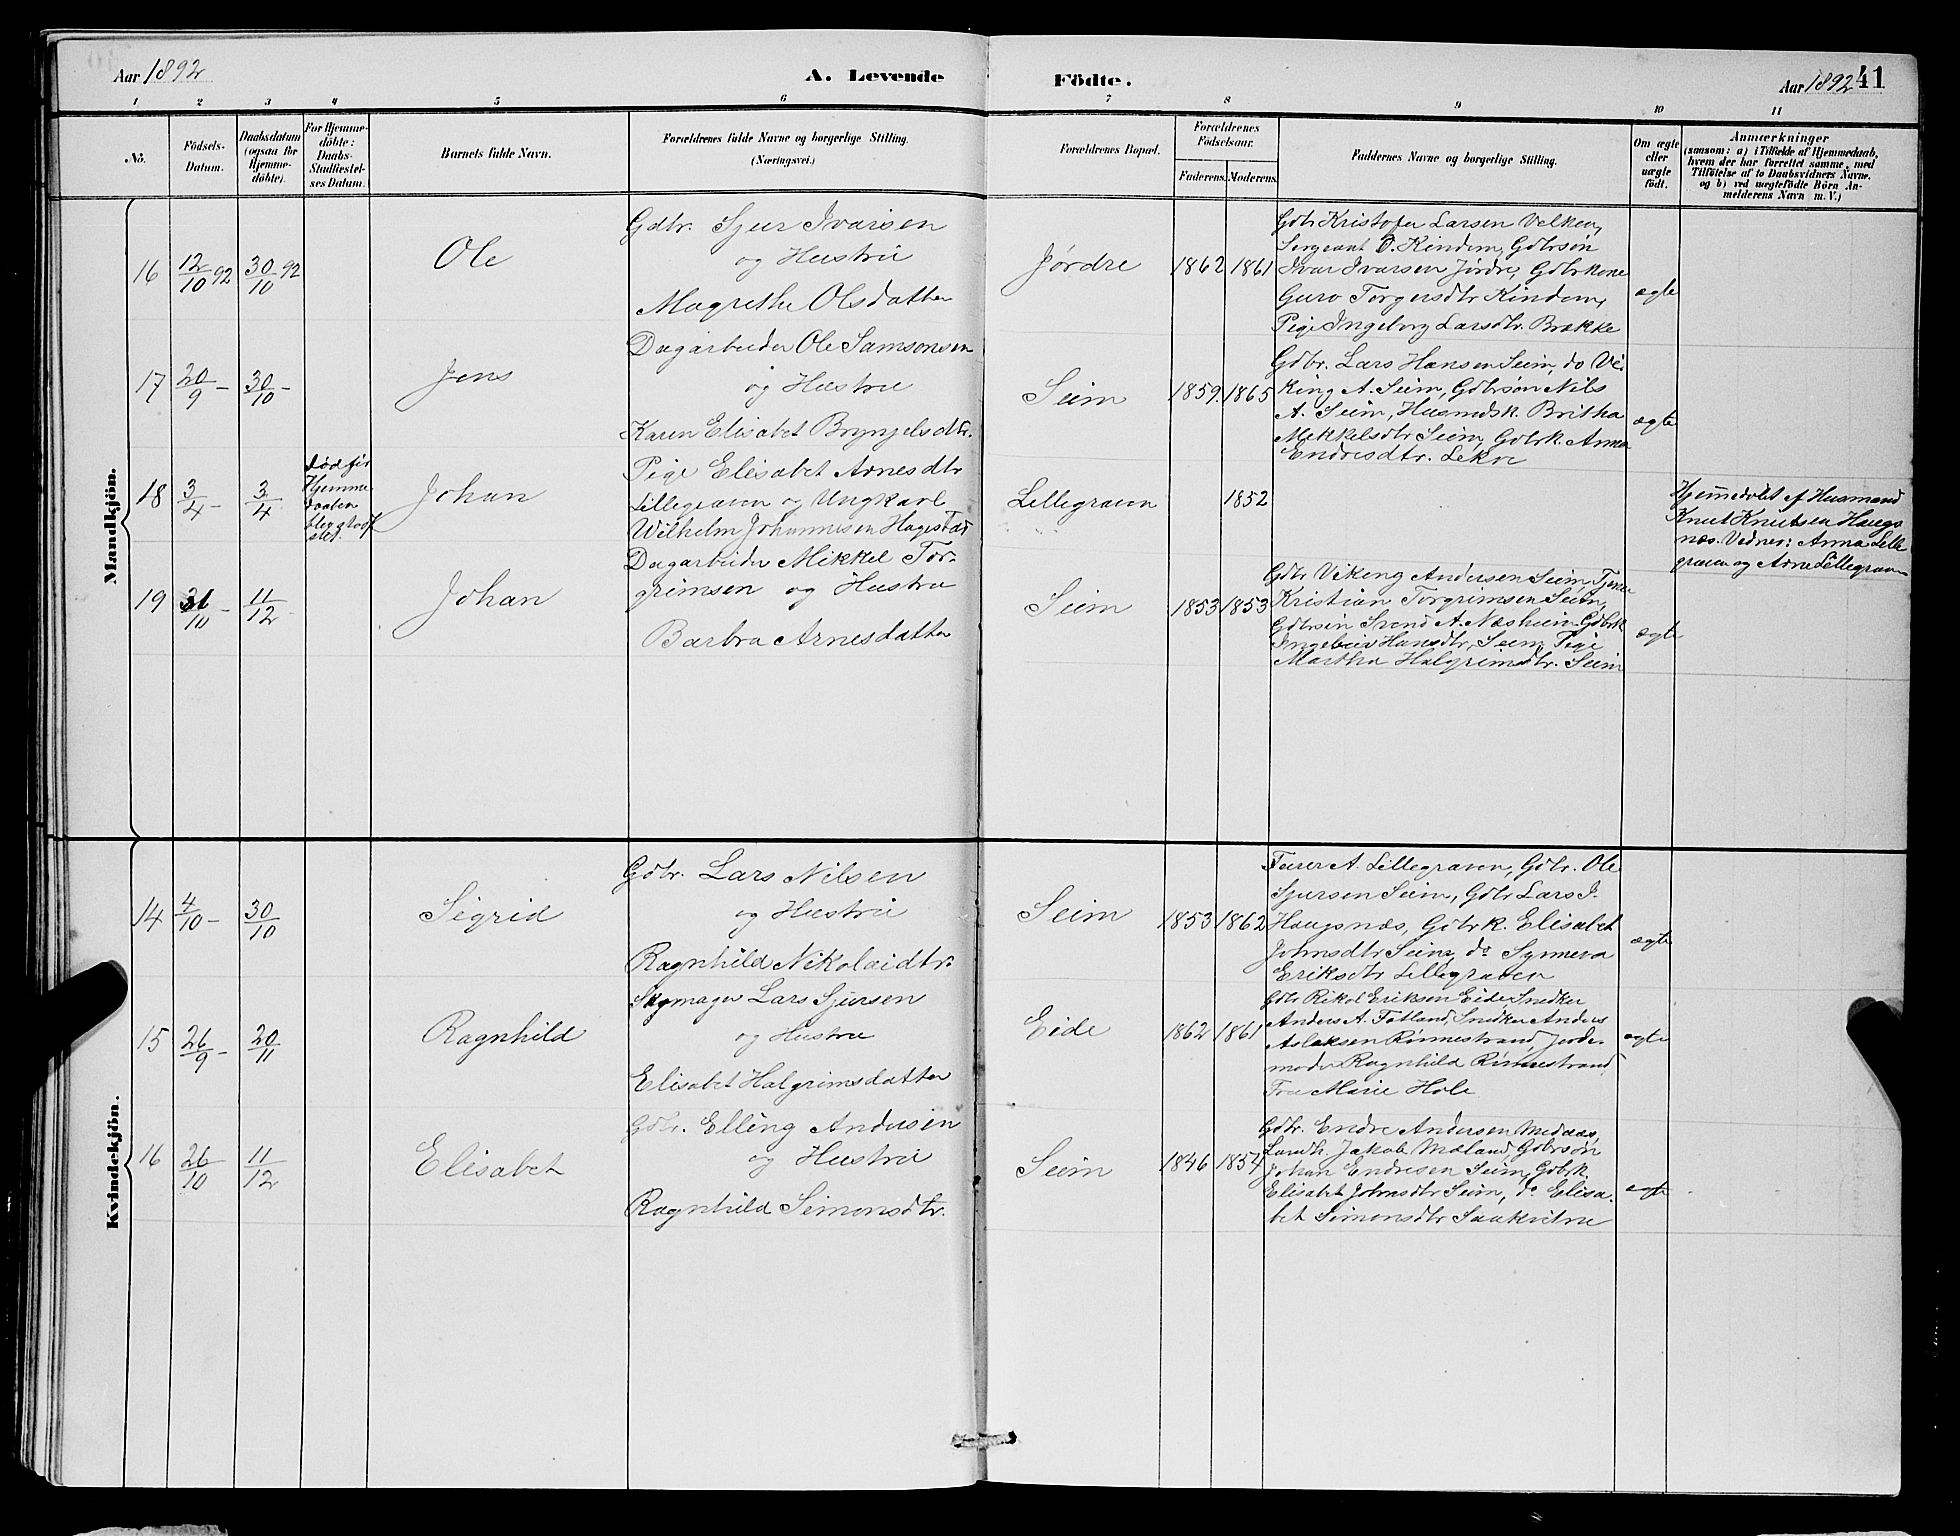 Aar 1892
A. Levende
Födte.
Aar 1892
41
1 2 3 4 5 6 7 8 9 10 11
No.
Födsels-
Datum.
Daabsdatum
(ogsaa for
Hjemme-
döbte).
For Hjemme-
döbte:
Daabs-
Stadfæstel-
ses Datum.
Barnets fulde Navn.
Forældrenes fulde Navne og borgerlige Stilling.
(Næringsvei.)
Forældrenes Bopæl.
Forældrenes
Födselsaar.
Faderens. Moderens.
Faddernes Navne og borgerlige Stilling.
Om ægte
eller
uægte
født.
Anmærkninger
(saasom: a) i Tilfælde af Hjemmedaab,
hvem der har forrettet samme, med
Tilföielse af to Daabsvidners Navne,
og b) ved uægtefödte Börn An-
melderens Navn m. V.)
Mandkjön.
16
12/10 92
30/10 92
Ole
Gdbr. Sjur Ivarsen
og Hustru
Magrethe Olsdatter
Jørdre
1862
1861
Gdbr Kristofer Larsen Velken,
Sergeant O. Kindem, Gdbrsøn
Ivar Ivarsen Jørdre, Gdbrkone
Guro Torgersdtr Kindem,
Pige Ingeborg Larsdtr. Brække
ægte
17
20/9 -
30/10 -
Jens
Dagarbeider Ole Samsonsen
og Hustru
Karen Elisabet Brynjelsdtr.
Seim
1859.
1865
Gdbr. Lars Hansen Seim, do Vi-
king A. Seim, Gdbrsøn Nils
A. Seim, Husmdsk. Britha
Mikkelsdtr Seim, Gdbrk. Anna
Endresdtr. Lekve
ægte
18
3/4 -
3/4
død før
Hjemme
daaben
blev stadf
stet.
Johan
Pige Elisabet Arnesdtr
Lillegraven og Ungkarl
Wilhelm Johannesen Hagestad
Lillegraven
1852
Hjemmedøbt af Husmand
Knut Knutsen Haugs
næs. Vidner: Anna Lille
graven og Arne Lillegraven
19
31/10 -
11/12
Johan
Dagarbeider Mikkel Tor-
grimsen og Hustru
Barbra Arnesdatter
Seim
1853
1853
Gdbr Viking Andersen Seim, Tjener
Kristian Torgrimsen Seim,
Gdbrsøn Svend A. Næsheim Gdbrk
Hansdtr, Seim, Pige
Martha Halgrimsdtr. Seim
ægte
Kvindekjön.
14
4/10 -
30/10
Sigrid
Gdbr. Lars Nilsen
og Hustru
Ragnhild Nikolaidtr.
Seim
1853
1862
A. Lillegraven, Gdbr. Ole
Sjursen Seim, Gdbr Lars J.
Haugsnæs, Gdbrk. Elisabet
Johnsdtr Seim, do Synneva
Eriksdtr Lillegraven
ægte
15
26/9 -
20/11
Ragnhild
Skomager Lars Sjursen
og Hustru
Elisabet Halgrimsdatter
Eide
1862
1861
Gdbr Rikol Eriksen Eide Snedker
Anders A. Fotland, Snedker Anders
Aslaksen Rønnestrand, Jorde-
moder Ragnhild Rønnestrand,
Fru Marie Hole
ægte
16
26/10
11/12
Elisabet
Gdbr. Elling Andersen
og Hustru
Ragnhild Simonsdtr.
Seim
1846
1854
Gdbr. Endre Andersen Medaas,
Landh. Jakob Moland, Gdbrsøn
Johan Endresen Seim, Gdbrk
Elisabet Johnsdtr Seim, do Elisa-
bet Simonsdtr Saakvitne
ægte